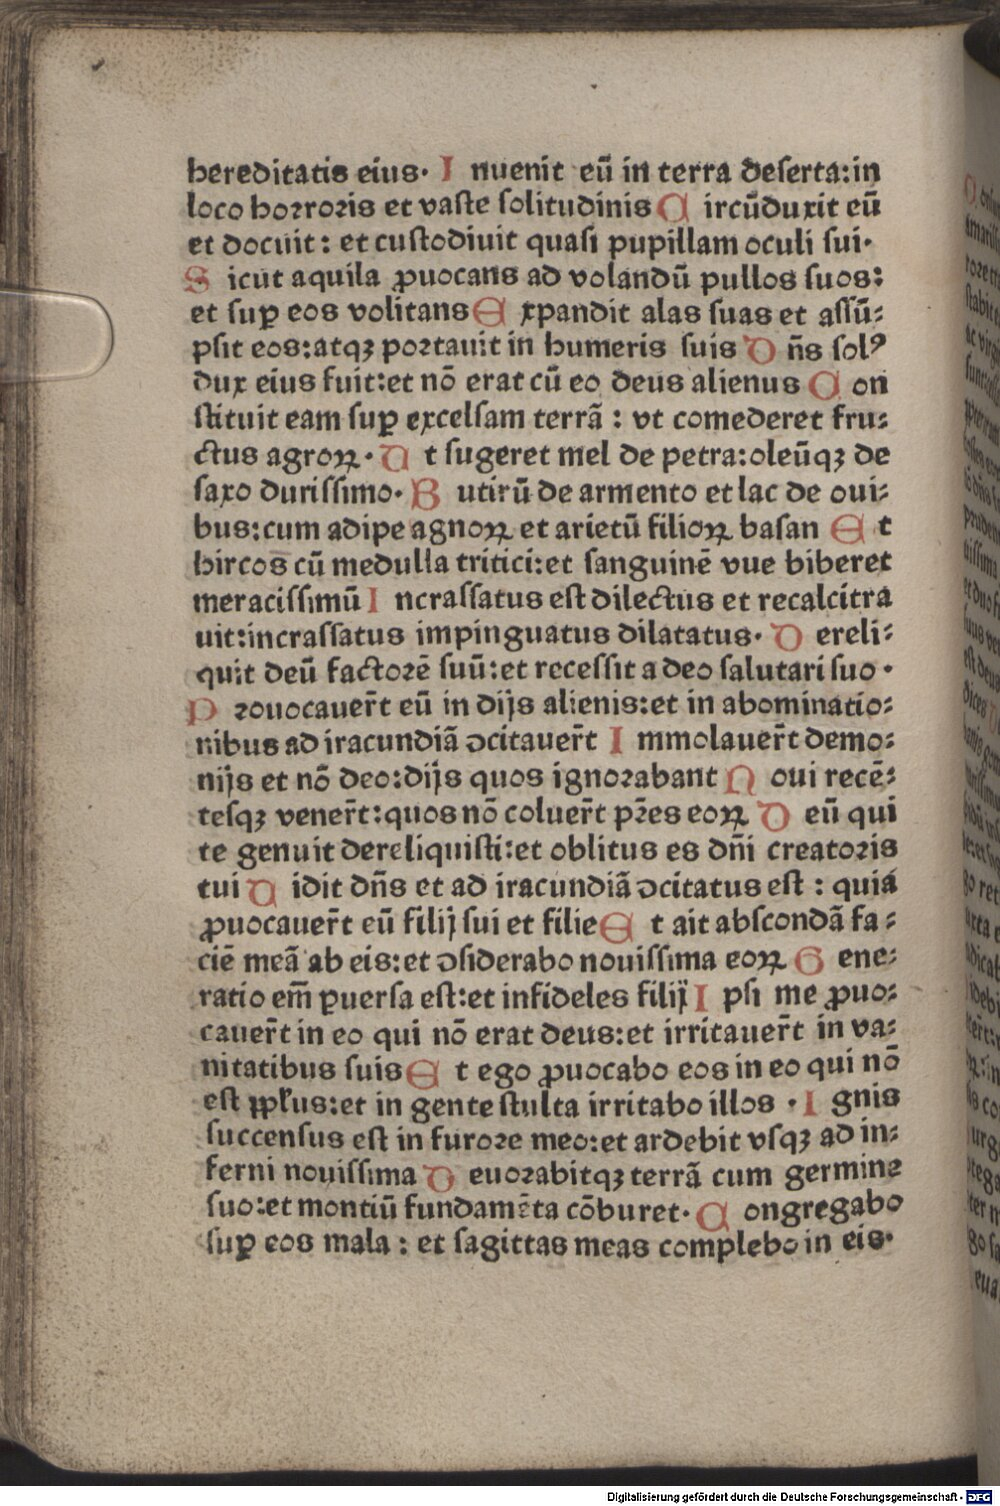 hereditatis eius· Inuenit eū in terra deserta:in
loco horroris et vaste solitudinis Circūduxit eū
et docuit: et custodiuit quasi pupillam oculi sui·
Sicut aquila ꝓuocans ad volandū pullos suos:
et suꝑ eos volitans Expandit alas suas et assū⸗
psit eos:atqꝫ portauit in humeris suis Dn̄s solꝰ
dux eius fuit:et nō erat cū eo deus alienus Con
stituit eam suꝑ excelsam terrā : vt comederet fru⸗
ctus agroꝝ· Ut sugeret mel de petra:oleūqꝫ de
saxo durissimo· Butirū de armento et lac de oui⸗
bus:cum adipe agnoꝝ et arietū filioꝝ basan Et
hircos cū medulla tritici:et sanguinē vue biberet
meracissimū Incrassatus est dilectus et recalcitra
uit:incrassatus impinguatus dilatatus· Dereli⸗
quit deū factorē suū:et recessit a deo salutari suo·
Prouocauer̄t eū in dijs alienis:et in abominatio⸗
nibus ad iracundiā ꝯcitauer̄t Immolauer̄t demo⸗
nijs et nō deo:dijs quos ignorabant Noui recē⸗
tesqꝫ vener̄t:quos nō coluer̄t pr̄es eoꝝ Deū qui
te genuit dereliquisti:et oblitus es dn̄i creatoris
tui Uidit dn̄s et ad iracundiā ꝯcitatus est : quia
ꝓuocauer̄t eū filij sui et filie Et ait abscondā fa⸗
ciē meā ab eis:et ꝯsiderabo nouissima eoꝝ Gene⸗
ratio em̄ ꝑuersa est:et infideles filij Ipsi me ꝓuo⸗
cauer̄t in eo qui nō erat deus:et irritauer̄t in va⸗
nitatibus suis Et ego ꝓuocabo eos in eo qui nō
est ppl̄us:et in gente stulta irritabo illos · Ignis
succensus est in furore meo:et ardebit vsqꝫ ad in⸗
ferni nouissima Deuorabitqꝫ terrā cum germine
suo:et montiū fundamēta cōburet· Congregabo
suꝑ eos mala : et sagittas meas complebo in eis·
Digitalisierung gefördert durch die Deutsche Forschungsgemeinschaft - DFG